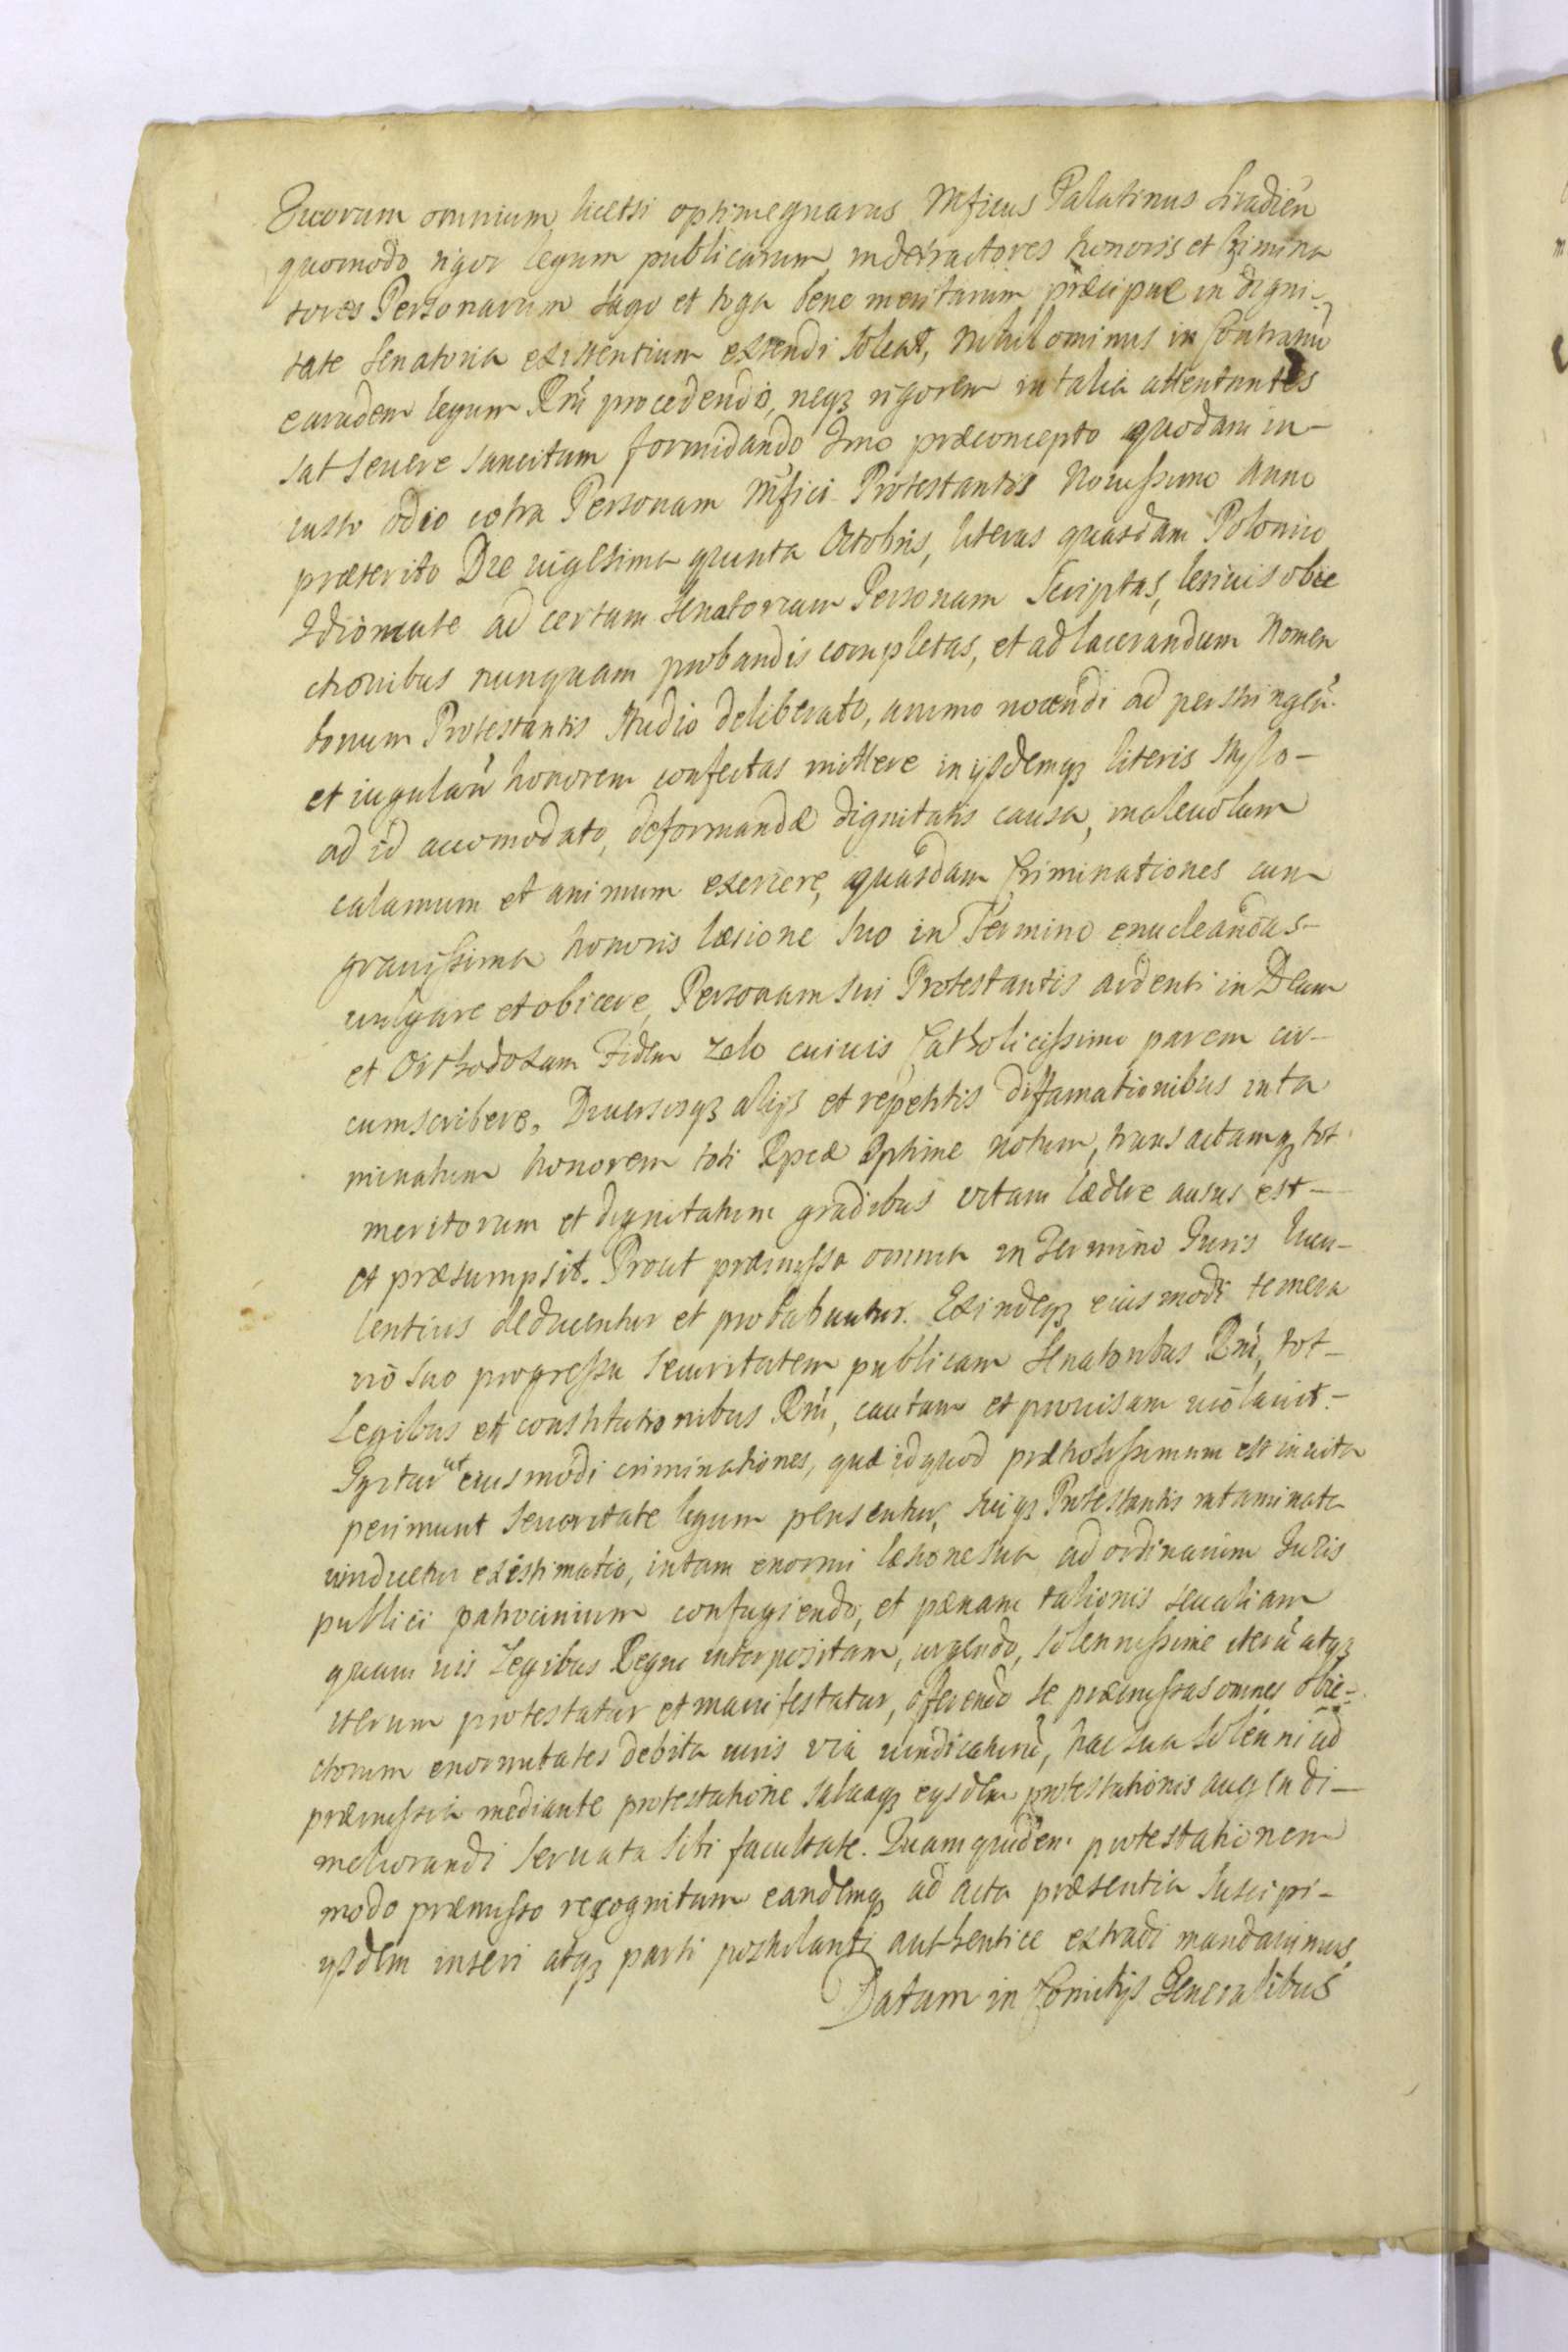 Quorum omnium licetsi optime gnarus Mficus Palatinus Siradien
quomodo rigor legum publicarum in detractores honoris et Crimina
tores Personarum sago et toga bene meritarum præcipue in digni-
tate Senatoria existentium extendi soleat, nihilominus in contrariũ
earundem legum Rni procedendo, neqz rigorem in talia attentantes
sat seuere sancitum formidando Imo præconcepto quodam in-
iusto odio cotra Personam Mfici Protestantis Nouissimo Anno
præterito Die uigesima quinta Octobris, literas quasdam Polonico
Idiomate ad certam Senatoriam Personam Scriptas, lesiuis obie
ctionibus nunquam probandis completas, et ad lacerandum Nomen
bonum Protestantis studio deliberato, animo nocendi ad perstringẽn
et iugulãn honorem confectas mittere in ijsdemqz literis stylo-
ad id accomodato, deformandæ dignitatis causa, maleuolum
calamum et animum exerere, quasdam Criminationes cum
grauissima honoris læsione suo in Termino enucleandas-
uulgare et obicere, Personam sui Protestantis ardenti in Deum
et Orthodoxam Fidem zelo cuiuis Catholicissimo parem cir-
cumscribere, Diuersisqz alijs et repetitis diffamationibus inta
minatum honorem toti Rpcæ optime notum, transactamqz tot
meritorum et dignitatum gradibus vitam lædere ausus est-
et præsumpsit. Prout præmissa omnia in Termino Iuris lucu-
lentius deducentur et probabuntur. Exindeqz eiusmodi temera
rio suo progressu securitatem publicam Senatoribus Rni, tot-
Legibus et constitutionibus Rni, cautam et prouisam uiolauit.-
Igitur ut eiusmodi criminationes, quæ id quod prætiosissimum est in uita
perimunt seueritate legum pensentur, suiqz Protestantis intaminata
uindicetur existimatio, in tam enormi læsione sua ad ordinarium Iuris
publici patrocinium confugiendo, et pænam talionis seu aliam
quam uis Legibus Regni interpositam, urgendo, solennissime iterũ atqz
iterum protestatur et manifestatur, offerendo se præmissas omnes obie-
ctorum enormitates debita iuris via uindicaturũ, hac sua solenni ad
præmissa mediante protestatione saluaqz eijsdem protestationis augendi-
meliorandi seruata sibi facultate. Quam quidem protestationem
modo præmisso recognitam eandemqz ad acta præsentia suscipi-
ijsdem inseri atqz parti postulanti authentice extradi mandauimus,
Datum in Comitijs Generalibus